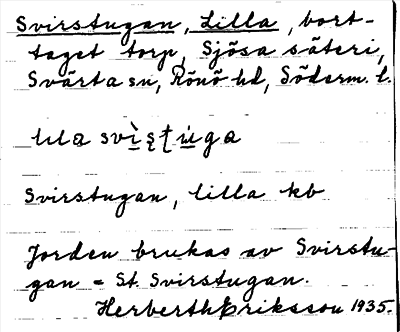 Svirstugan, Lilla, bort-
taget torp, Sjösa säteri,
Svärta sn, Rönö hd, Söderm. l.
lila
Svirstugan, lilla kb
Jorden brukas av Svirstu-
gan = St. Svirstugan.
Herberth Eriksson 1935.